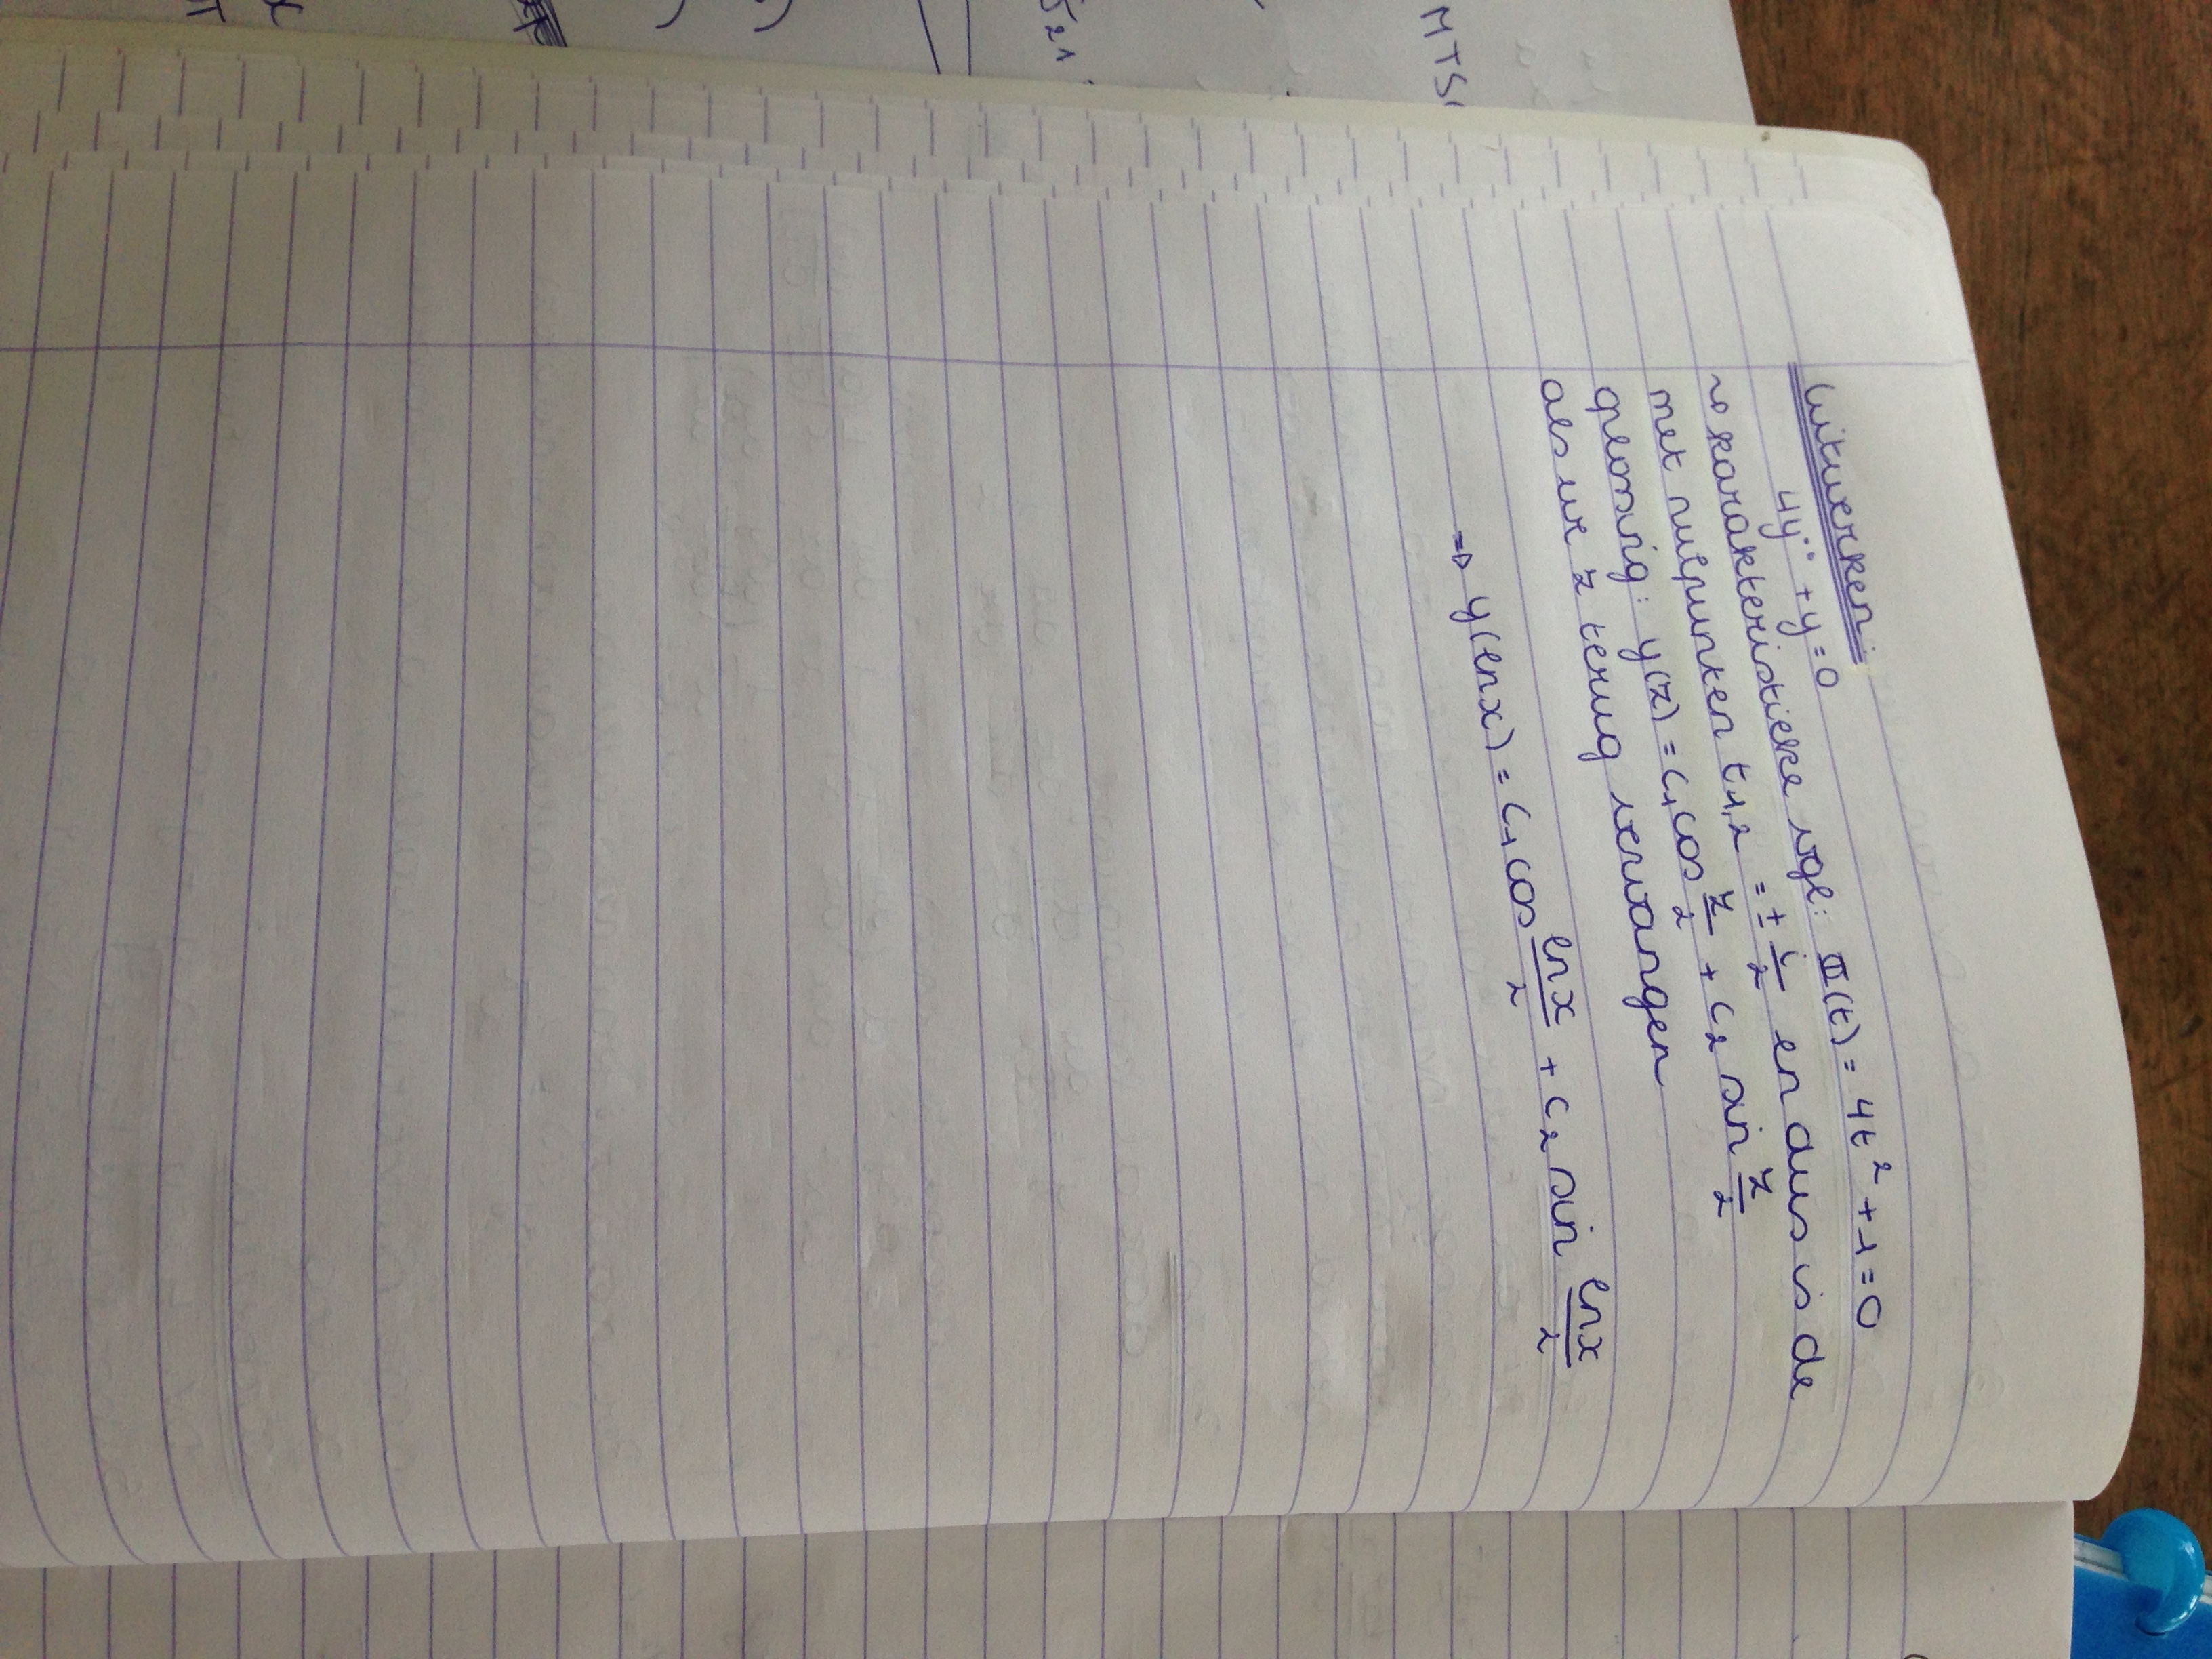 Uitwerken:
4ÿ + y = 0
⤳ karakteristieke vgl: Π(t) = 4t² + 1 = 0
met nulpunten t₁,₂ = ± i/2 en dus is de
oplossing: y(z) = C₁ cos z/2 + C₂ sin z/2
als we z terug vervangen
⇒ y(ln x) = C₁ cos ln x/2 + C₂ sin ln x/2
MTS
21